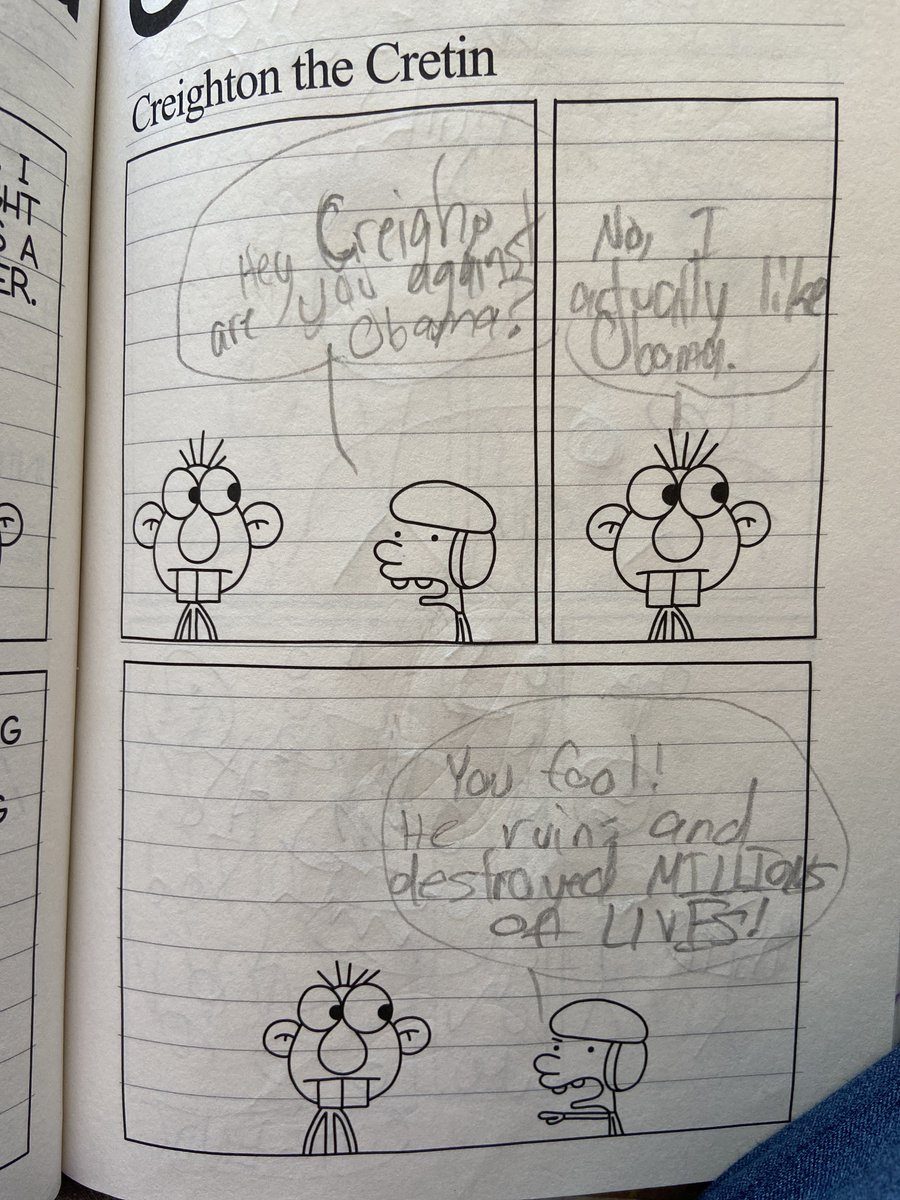 I
HT
S A
ER.
G
Creighton the Cretin
Hey Creighp
are you against
Obama?
No, I
actually like
Obama.
You fool!
He ruins and
destroyed MILLIONS
OF LIVES!